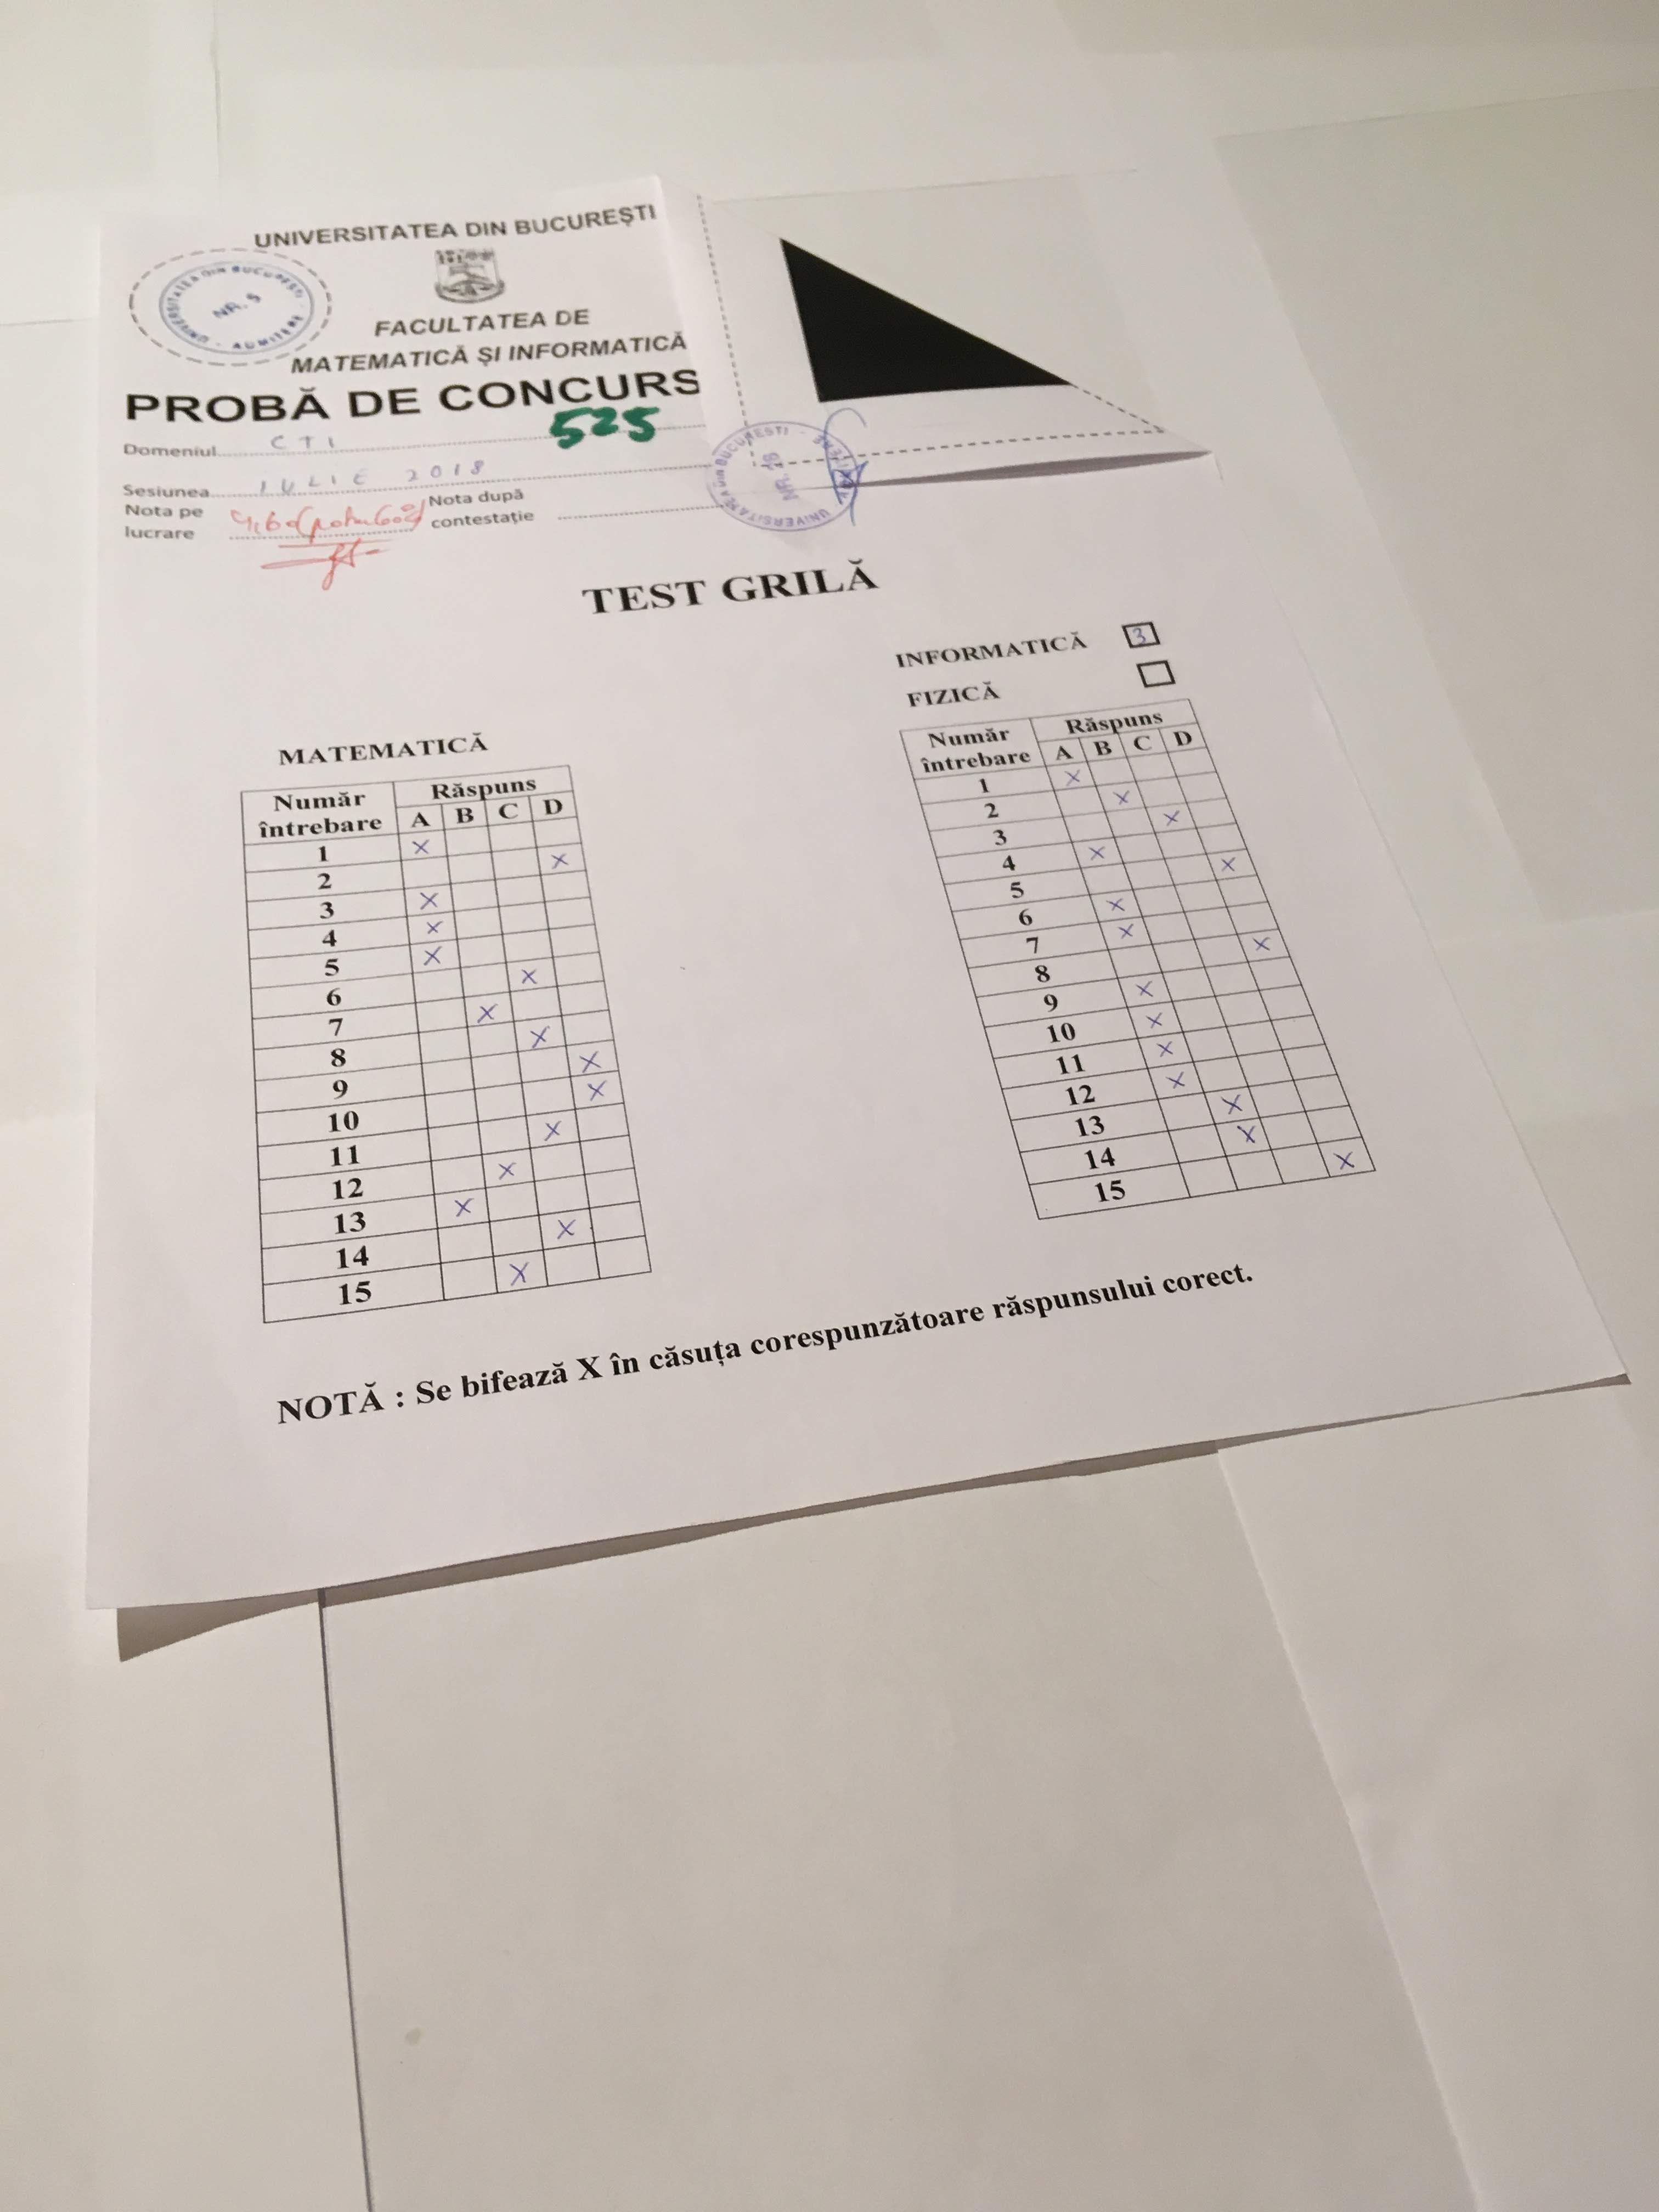 UNIVERSITATEA DIN BUCUREȘTI
UNIVERSITATEA DIN BUCUREȘTI · ADMITERE ·
NR. 5
FACULTATEA DE
MATEMATICĂ ȘI INFORMATICĂ
PROBĂ DE CONCURS
525
Domeniul CTI
Sesiunea IULIE 2018
Nota pe lucrare
Nota după contestație
UNIVERSITATEA DIN BUCUREȘTI · ADMITERE
NR. 16
TEST GRILĂ
INFORMATICĂ 3
FIZICĂ
MATEMATICĂ
Număr întrebare Răspuns
A B C D
1 X
2 X
3 X
4 X
5 X
6 X
7 X
8 X
9 X
10 X
11 X
12 X
13 X
14 X
15 X
Număr întrebare Răspuns
A B C D
1 X
2 X
3 X
4 X
5 X
6 X
7 X
8 X
9 X
10 X
11 X
12 X
13 X
14 X
15 X
NOTĂ : Se bifează X în căsuța corespunzătoare răspunsului corect.